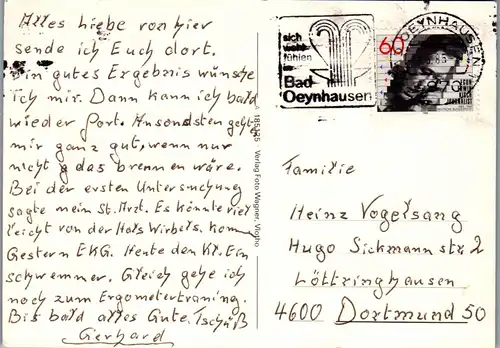 Alles liebe von hier
sende ich Euch dort.
Ein gutes Ergebnis wünsche
ich mir. Dann kann ich bald
wieder fort. Ansonsten geht
mir ganz gut, wenn nur
nicht das brennen wäre.
Bei der ersten Untersuchung
sagte mein St. Arzt. Es könnte viel
leicht von der Hals Wirbels. kom
Gestern EKG. Heute den Kl. Ein
schwemmer. Gleich gehe ich
noch zum Ergometertraining.
Bis bald alles Gute. Tschüß
Gerhard
Verlag Foto Wagner, Vlotho
sich
wohl
fühlen
in
Bad
Oeynhausen
60
OEYNHAUSEN
EGON
ERWIN
KISCH
JOURNALIST
Familie
Heinz Vogelsang
Hugo Sickmann str 2
Löttringhausen
4600 Dortmund 50